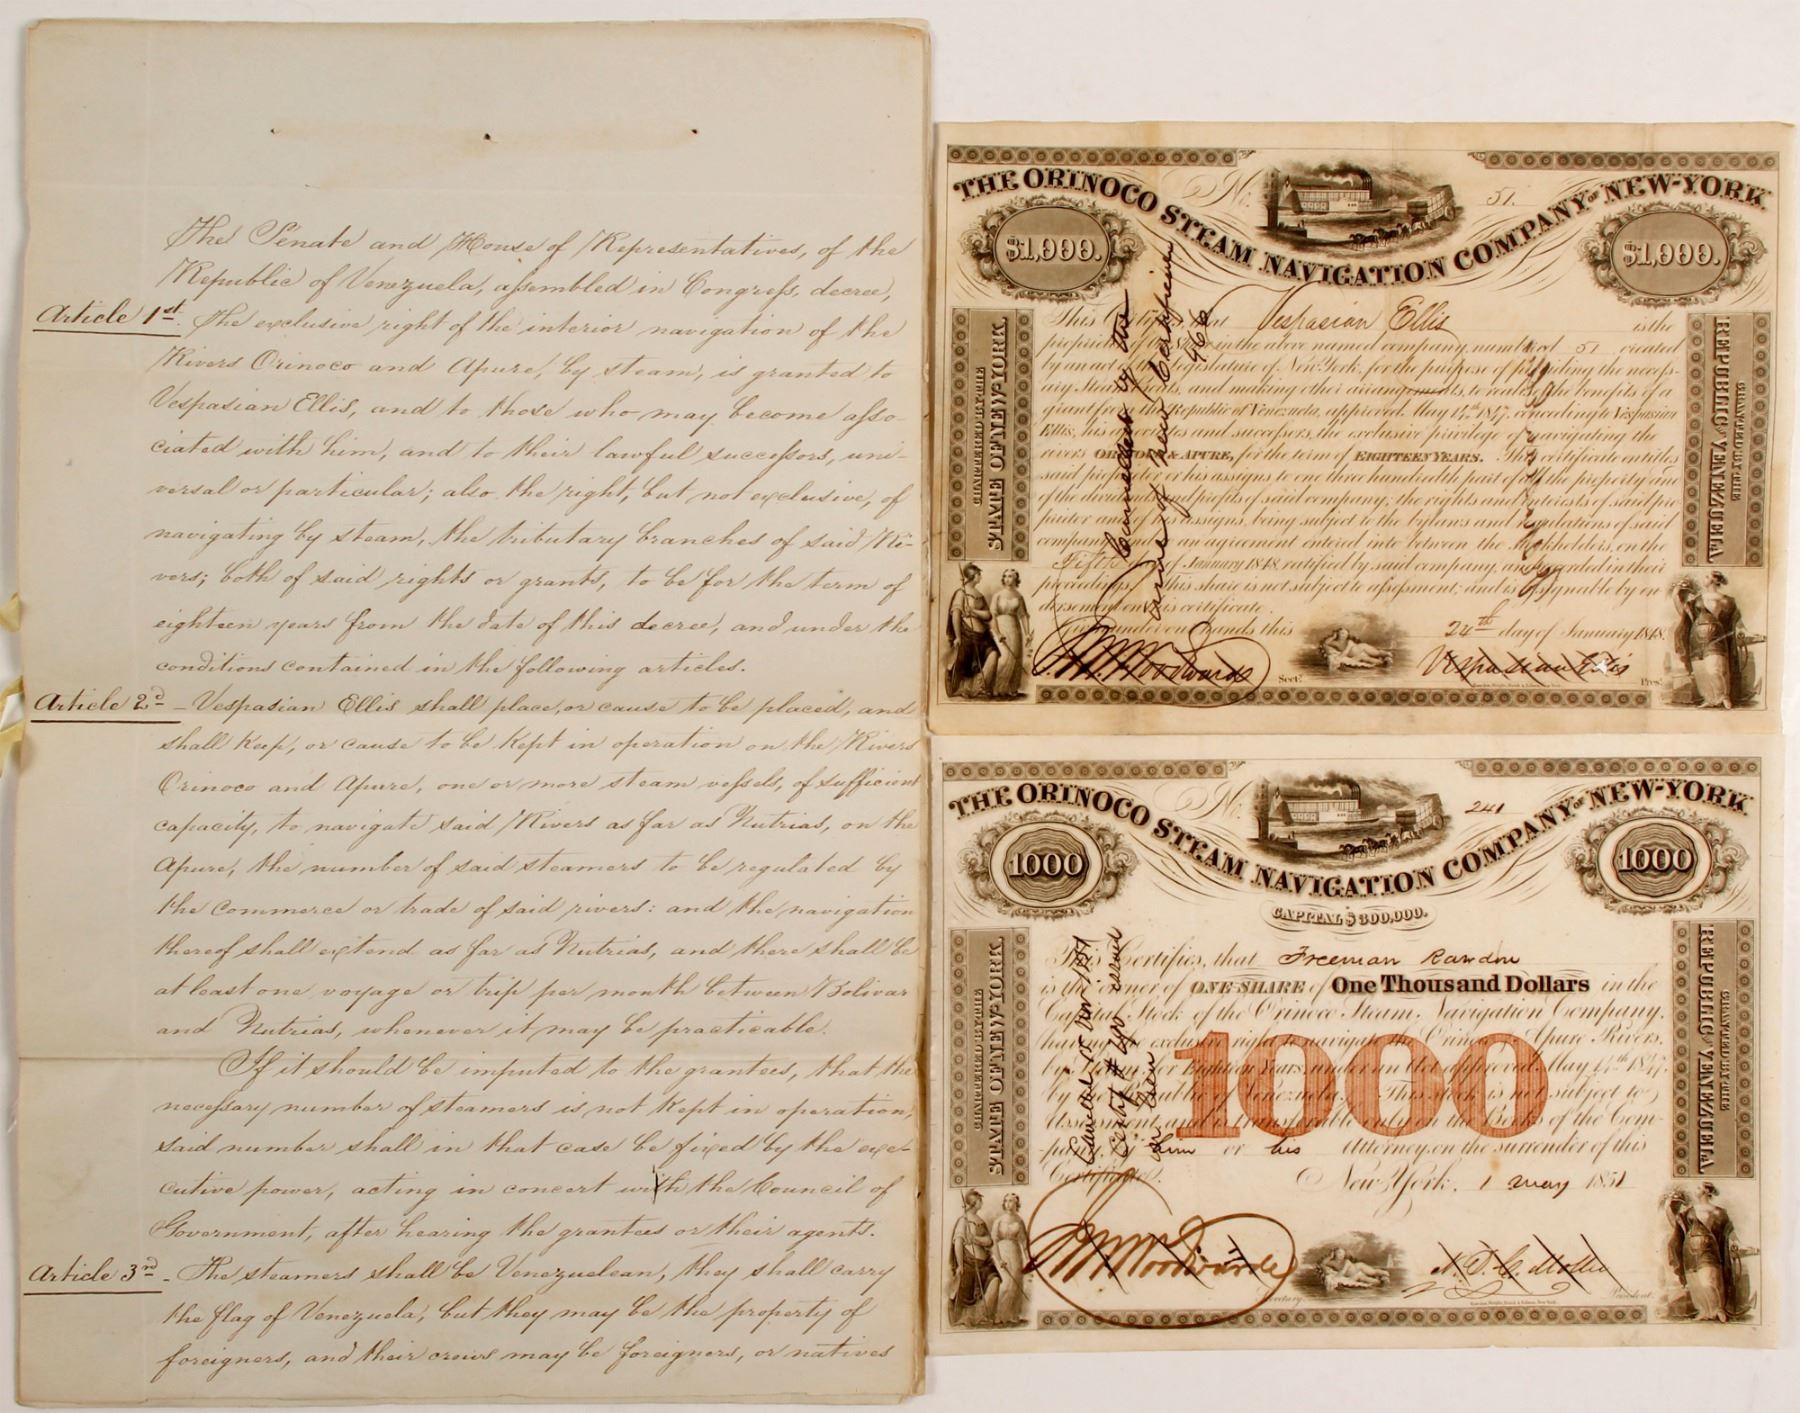 The Senate and House of Representatives, of the
Republic of Venezuela, assembled in Congress, decree,
Article 1st. The exclusive right of the interior navigation of the
Rivers Orinoco and Apure, by steam, is granted to
Vespasian Ellis, and to those who may become asso-
ciated with him, and to their lawful successors, uni-
versal or particular; also the right, but not exclusive, of
navigating by steam, the tributary branches of said Ri-
vers; both of said rights or grants, to be for the term of
eighteen years from the date of this decree, and under the
conditions contained in the following articles.
Article 2d - Vespasian Ellis shall place, or cause to be placed, and
shall keep, or cause to be kept in operation on the Rivers
Orinoco and Apure, one or more steam vessels, of sufficient
capacity, to navigate said Rivers as far as Nutrias, on the
Apure, the number of said steamers to be regulated by
the commerce or trade of said rivers: and the navigation
thereof shall extend as far as Nutrias, and there shall be
at least one voyage or trip per month between Bolivar
and Nutrias, whenever it may be practicable.
If it should be imputed to the grantees, that the
necessary number of steamers is not kept in operation,
said number shall in that case be fixed by the exe-
cutive power, acting in concert with the Council of
Government, after hearing the grantees or their agents.
Article 3rd - The steamers shall be Venezuelean, they shall carry
the flag of Venezuela, but they may be the property of
foreigners, and their crews may be foreigners, or natives
No. 51.
THE ORINOCO STEAM NAVIGATION COMPANY OF NEW-YORK.
$1,000.
$1,000.
CHARTERED BY THE
STATE OF NEW-YORK
GRANTED BY THE
REPUBLIC OF VENEZUELA
This Certifies, that Vespasian Ellis is the
proprietor of a share in the above named company, numbered 51 created
by an act of the Legislature of New York, for the purpose of providing the necess-
ary Steam Boats, and making other arrangements, to realize the benefits of a
grant from the Republic of Venezuela, approved May 14th 1847, conceding to Vespasian
Ellis, his associates and successors, the exclusive privilege of navigating the
rivers ORINOCO & APURE, for the term of EIGHTEEN YEARS. This certificate entitles
said proprietor or his assigns to one three hundredth part of all the property and
of the dividends and profits of said company; the rights and interests of said pro-
prietor and of his assigns, being subject to the bylaws and regulations of said
company, and to an agreement entered into between the stockholders, on the
Fifth day of January 1848, ratified by said company, and recorded in their
proceedings. This share is not subject to assessment; and is assignable by en-
dorsement on this certificate.
Given under our hands this 24th day of January 1848.
J. M. Woodward Secy. Vespasian Ellis Pres.
No. 241
THE ORINOCO STEAM NAVIGATION COMPANY OF NEW-YORK.
1000
1000
CAPITAL $300,000.
CHARTERED BY THE
STATE OF NEW-YORK
GRANTED BY THE
REPUBLIC OF VENEZUELA
This Certifies, that Freeman Rawdon
is the owner of ONE SHARE of One Thousand Dollars in the
Capital Stock of the Orinoco Steam Navigation Company,
having the exclusive right to navigate the Orinoco & Apure Rivers,
by Steam, for Eighteen Years, under an Act approved May 14th 1847.
by the Republic of Venezuela. This stock is not subject to
Assessment, and is transferable only on the Books of the Com-
pany, by him or his Attorney, on the surrender of this
Certificate.
1000
New York, 1 May 1851
J M Woodward Secretary President.